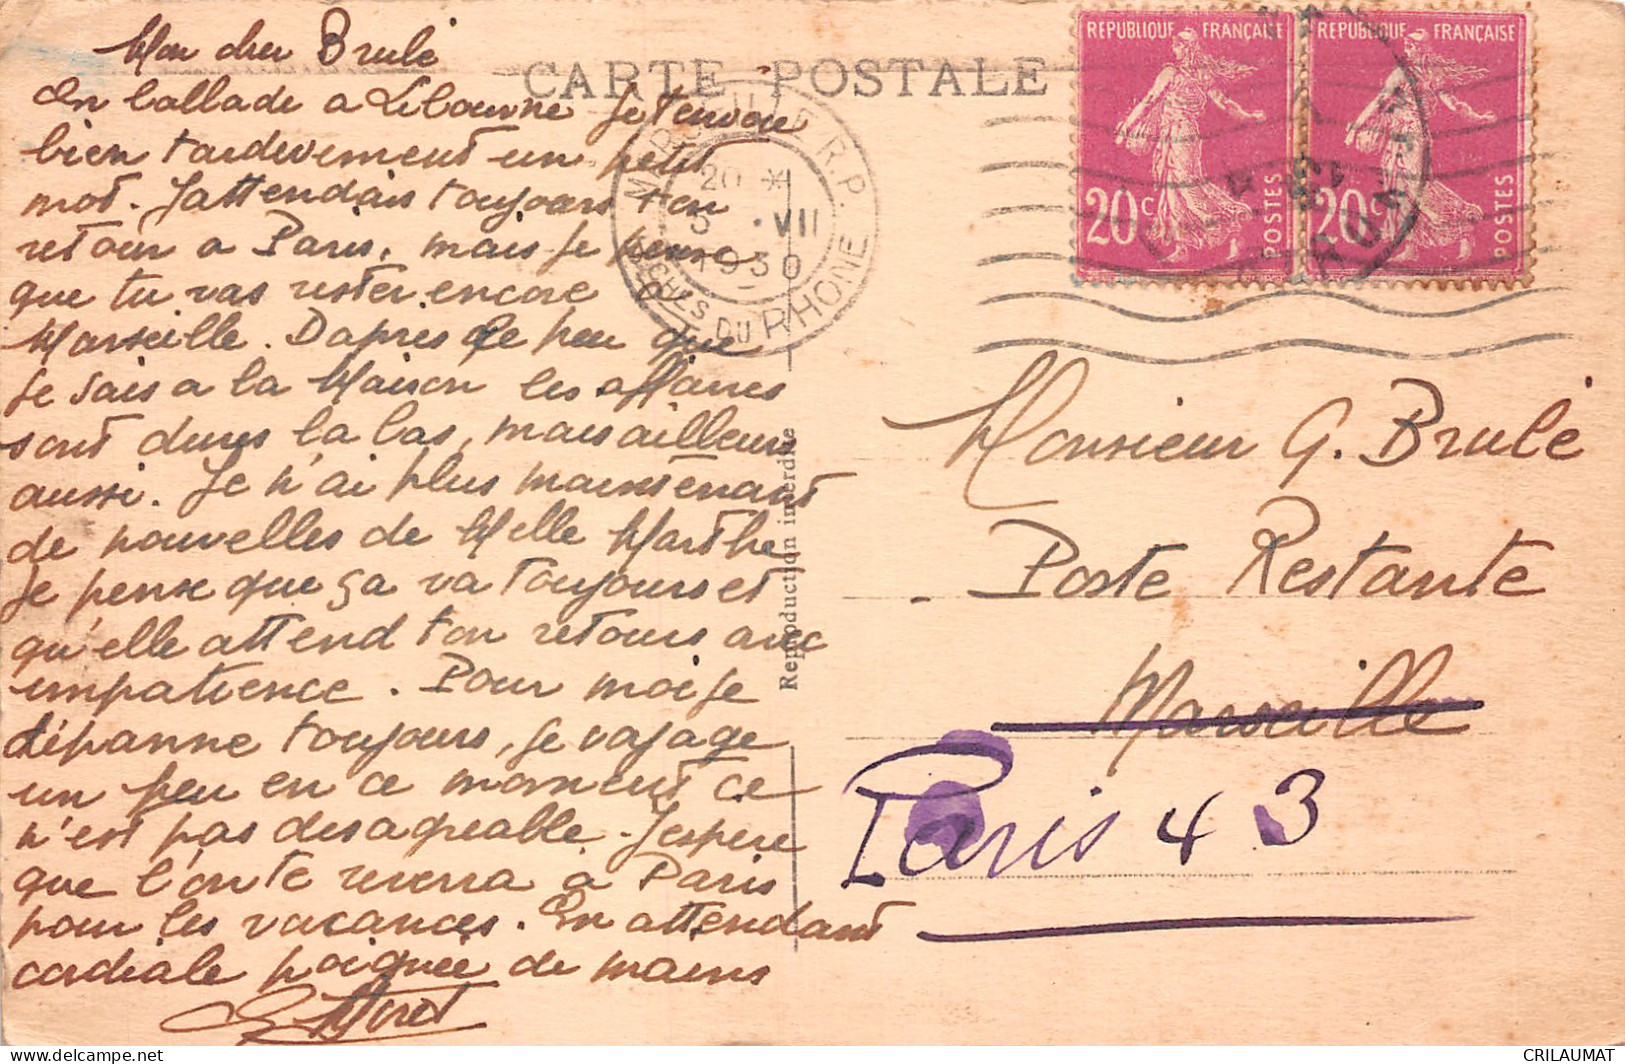 CARTE POSTALE
REPUBLIQUE FRANÇAISE
20c POSTES
REPUBLIQUE FRANÇAISE
20c POSTES
MARSEILLE R.P.
20 *
5 . VII
1930
BCHES DU RHONE
Mon cher Brulé
En ballade a Libourne Je t'envoie
bien tardivement un petit
mot. J'attendais toujours ton
retour a Paris, mais je pense
que tu vas rester encore a
Marseille. D'apres le peu que
je sais a la Maison les affaires
sont dures la bas, mais ailleurs
aussi. Je n'ai plus maintenant
de nouvelles de Melle Marthe
Je pense que ça va toujours et
qu'elle attend ton retours avec
impatience. Pour moi je
dépanne toujours, je voyage
un peu en ce moment ce
n'est pas desagreable. J'espere
que l'on te reverra à Paris
pour les vacances. En attendant
cordiale poignée de mains
Reproduction interdite
Monsieur G. Brulé
Poste Restante
Marseille
Paris 43
CRILAUMAT